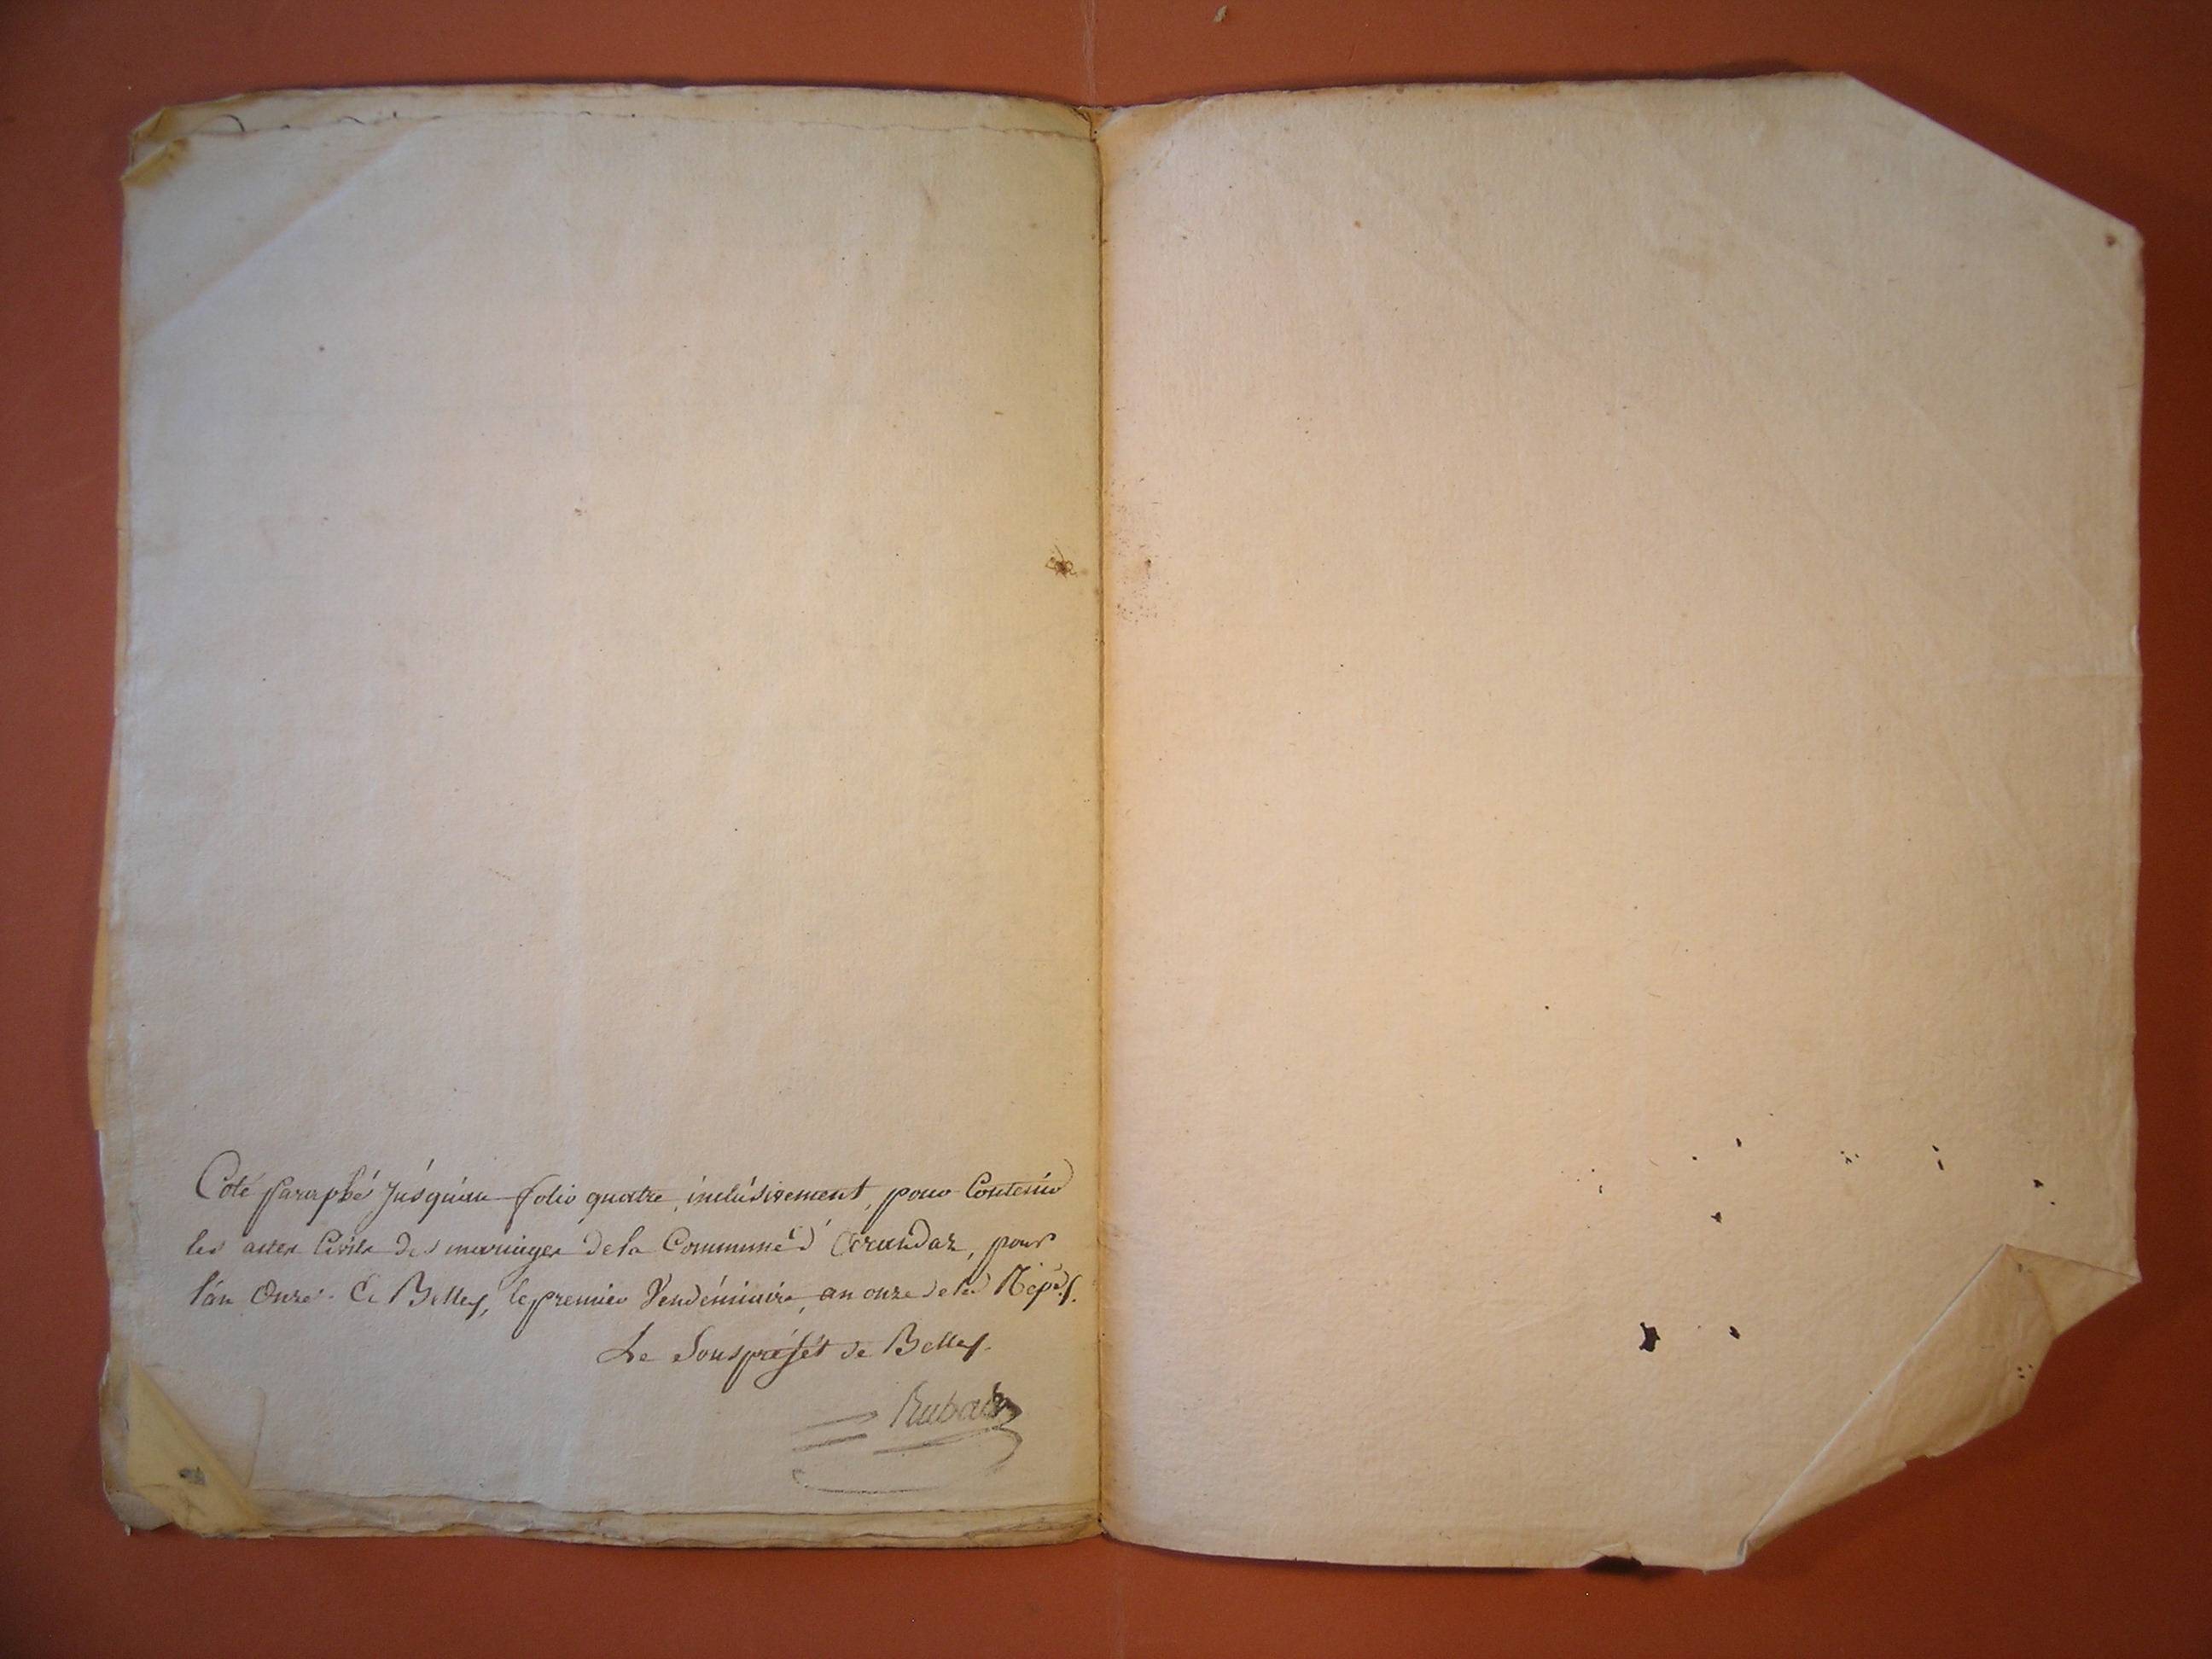 Coté paraphé jusqu'au folio quatre, inclusivement, pour contenir
les actes civils des mariages de la Commune d'Arandaz, pour
l'an onze. à Belley, le premier Vendémiaire, an onze de la Rép.
Le Souspréfet de Belley.